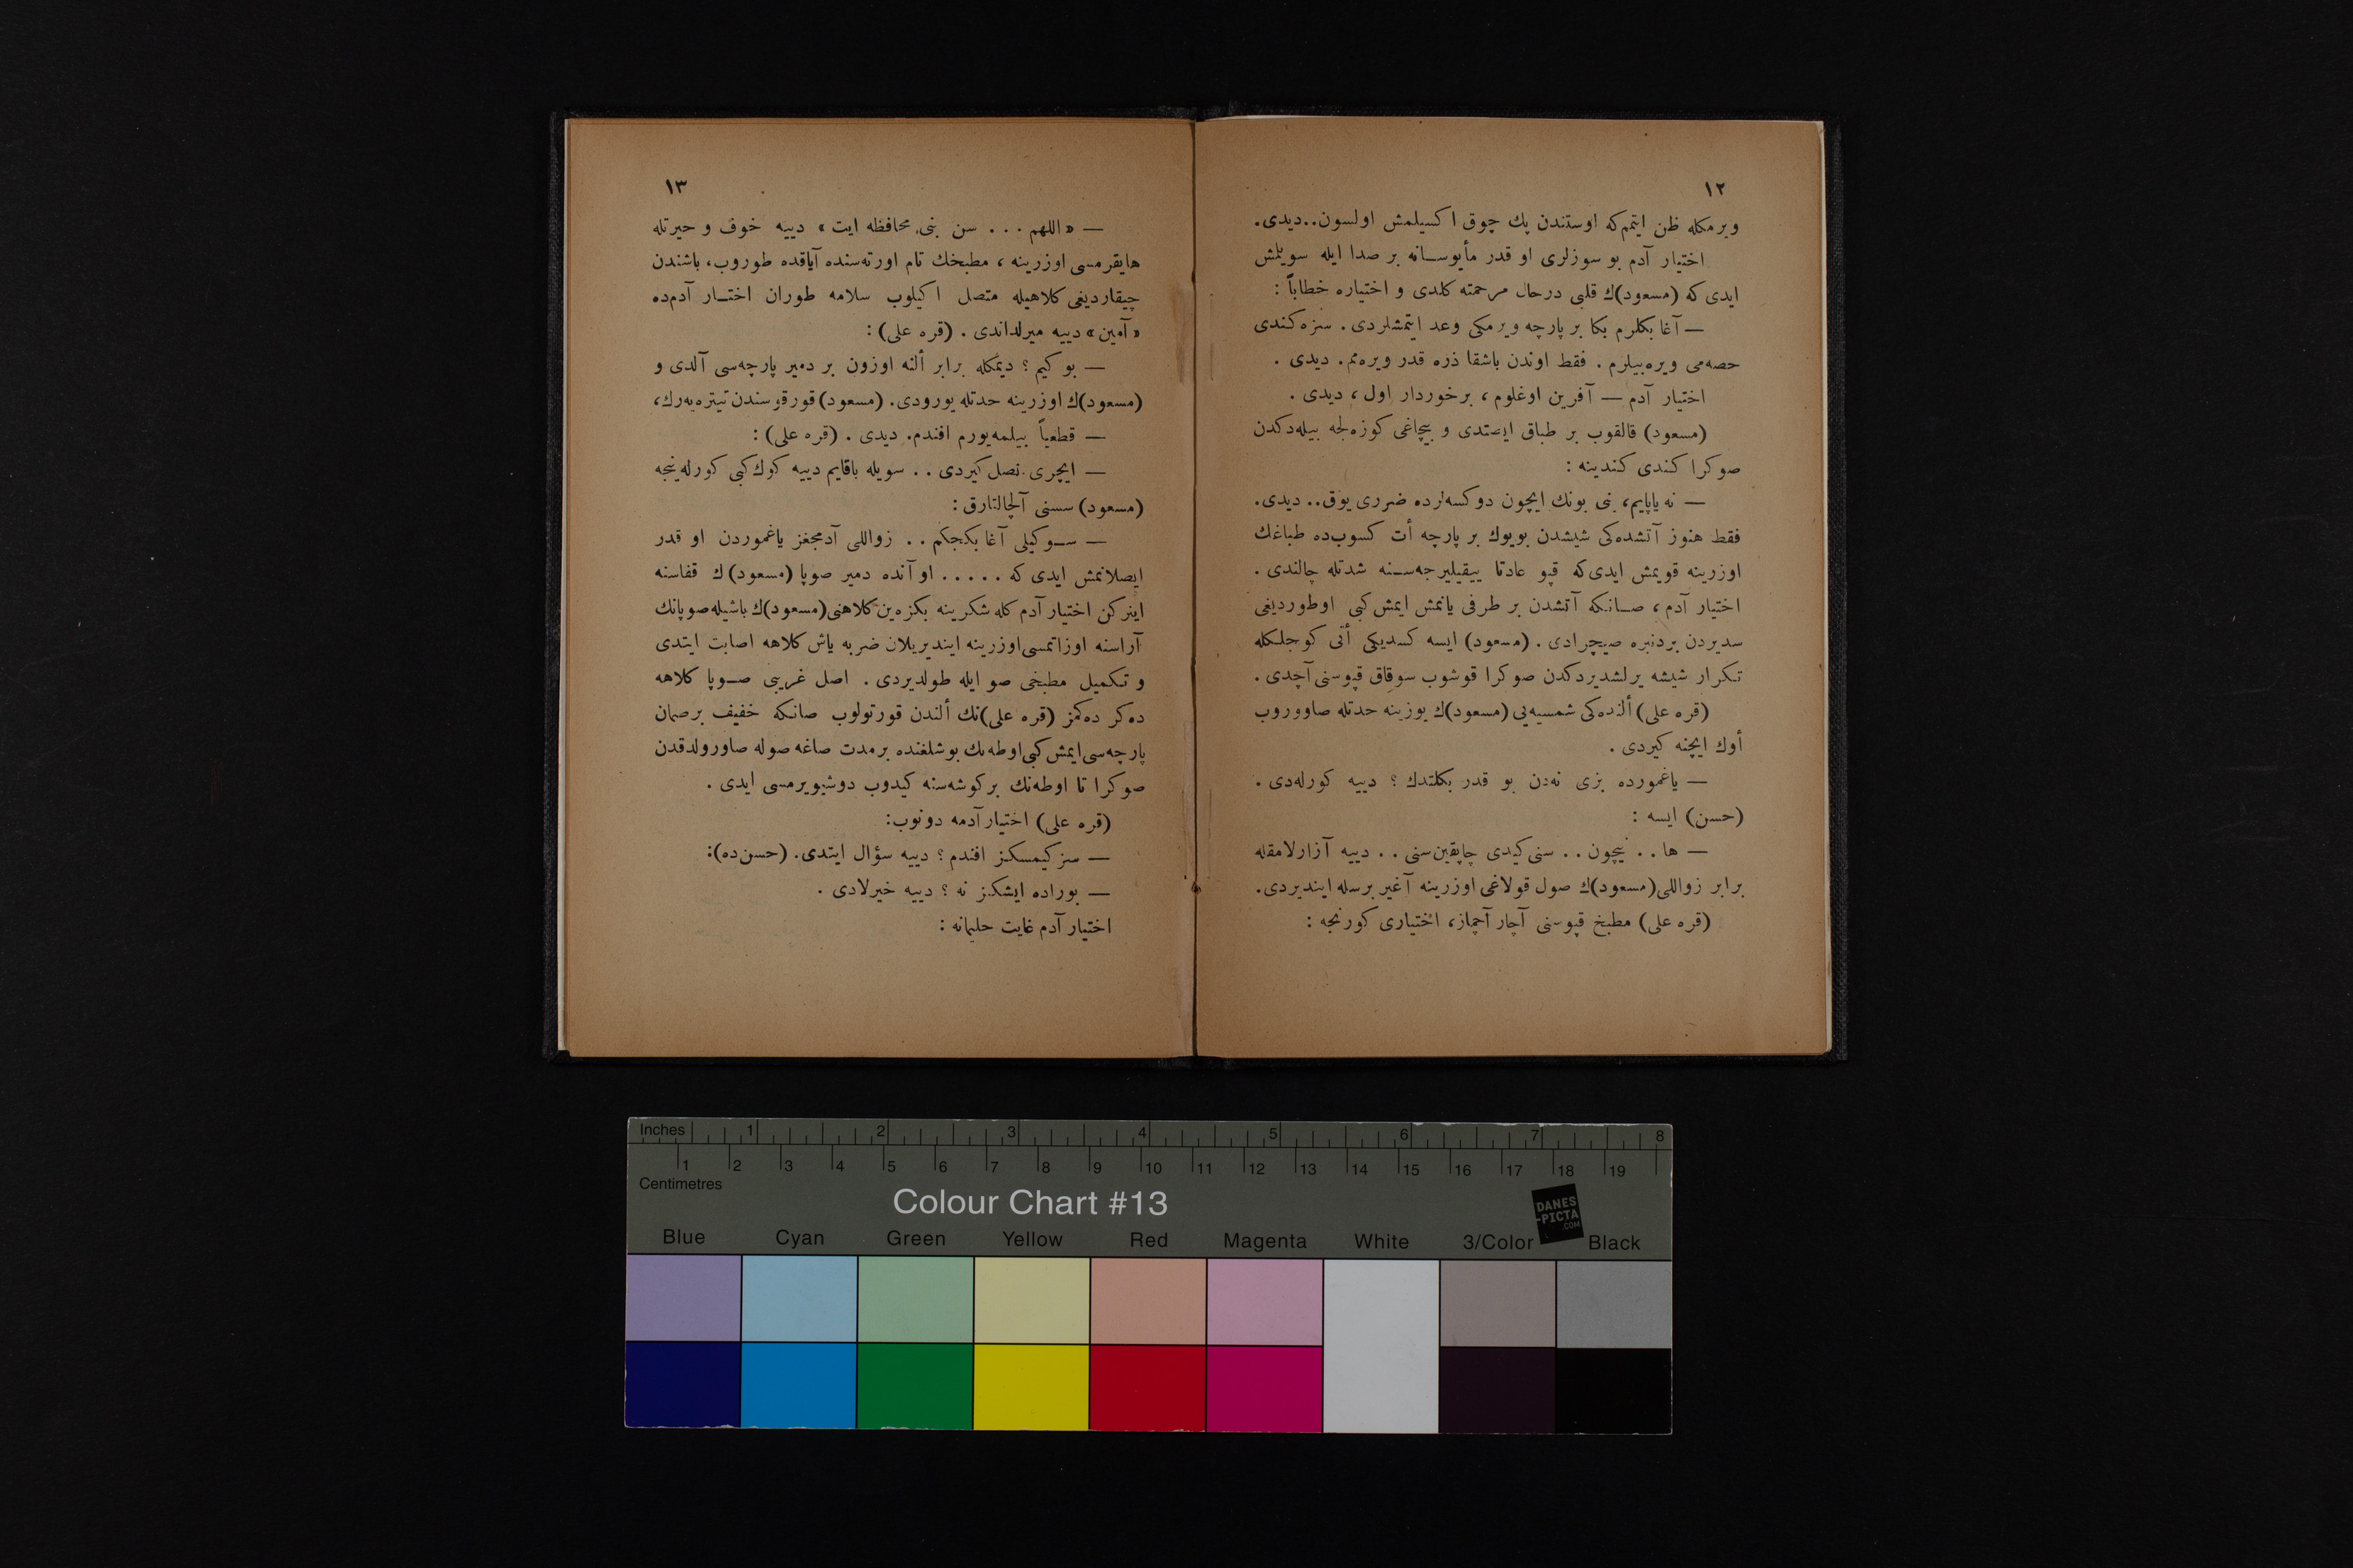 ١٢
ویرمكله ظن ایتمم‌كه اوستندن پك چوق اكسیلمش اولسون..دیدی.
اختیار آدم بو سوزلری او قدر مأیوسانه بر صدا ایله سویلمش
ایدی كه (مسعود)ك قلبی درحال مرحمته كلدی و اختیاره خطاباً :
— آغا بكلرم بكا بر پارچه ویرمكی وعد ایتمشلردی . سزه كندی
حصه‌می ویره‌بیلرم . فقط اوندن باشقا ذره قدر ویره‌مم. دیدی .
اختیار آدم — آفرین اوغلوم ، برخوردار اول ، دیدی .
(مسعود) قالقوب بر طباق ایصتدی و بیچاغی كوزه‌لجه بیله‌دكدن
صوكرا كندی كندینه :
— نه یاپایم، بنی بونك ایچون دوكسه‌لرده ضرری یوق.. دیدی.
فقط هنوز آتشده‌كی شیشدن بویوك بر پارچه أت كسوب‌ده طباغك
اوزرینه قویمش ایدی‌كه قپو عادتا ییقیلیرجه‌سنه شدتله چالندی .
اختیار آدم ، صانكه آتشدن بر طرفی یانمش ایمش كبی اوطوردیغی
سدیردن بردنبره صیچرادی . (مسعود) ایسه كسدیكی أتی كوجلكله
تكرار شیشه یرلشدیردكدن صوكرا قوشوب سوقاق قپوسنی آچدی .
(قره علی) ألنده‌كی شمسیه‌یی (مسعود)ك یوزینه حدتله صاووروب
أوك ایچنه كیردی .
— یاغمورده بزی نه‌دن بو قدر بكلتدك ؟ دییه كورله‌دی .
(حسن) ایسه :
— ها . . نیچون . . سنی كیدی چاپقین سنی . . دییه آزارلامقله
برابر زواللی (مسعود)ك صول قولاغی اوزرینه آغیر برسله ایندیردی.
(قره علی) مطبخ قپوسنی آچار آچماز، اختیاری كورنجه :
١٣
— « اللهم . . . سن بنی محافظه ایت » دییه خوف و حیرتله
هایقرمسی اوزرینه ، مطبخك تام اورته‌سنده آیاقده طوروب، باشندن
چیقاردیغی كلاهیله متصل اكیلوب سلامه طوران اختیار آدم‌ده
« آمین » دییه میرلداندی . (قره علی) :
— بو كیم ؟ دیمكله برابر ألنه اوزون بر دمیر پارچه‌سی آلدی و
(مسعود)ك اوزرینه حدتله یورودی. (مسعود) قورقوسندن تیتره‌یه‌رك،
— قطعیاً بیلمه‌یورم افندم. دیدی . (قره علی) :
— ایچری نصل كیردی . . سویله باقایم دییه كوك كبی كورله‌ینجه
(مسعود) سسنی آلچالتارق :
— سوكیلی آغا بكجكم . . زواللی آدمجغز یاغموردن او قدر
ایصلانمش ایدی كه . . . . . او آنده دمیر صوپا (مسعود)ك قفاسنه
اینركن اختیار آدم كله شكرینه بكزه‌ین كلاهنی (مسعود)ك باشیله صوپانك
آراسنه اوزاتمسی اوزرینه ایندیریلان ضربه یاش كلاهه اصابت ایتدی
و تكمیل مطبخی صو ایله طولدیردی . اصل غریبی صوپا كلاهه
ده‌كر ده‌كمز (قره علی)نك ألندن قورتولوب صانكه خفیف برصمان
پارچه‌سی ایمش كبی اوطه‌نك بوشلغنده برمدت صاغه صوله صاورولدقدن
صوكرا تا اوطه‌نك بر كوشه‌سنه كیدوب دوشیویرمسی ایدی .
(قره علی) اختیار آدمه دونوب:
— سز كیمسكز افندم ؟ دییه سؤال ایتدی. (حسن‌ده):
— بوراده ایشكز نه ؟ دییه خیرلادی .
اختیار آدم غایت حلیمانه :
Inches 1 2 3 4 5 6 7 8
1 2 3 4 5 6 7 8 9 10 11 12 13 14 15 16 17 18 19
Centimetres
Colour Chart #13
DANES
-PICTA
.COM
Blue Cyan Green Yellow Red Magenta White 3/Color Black